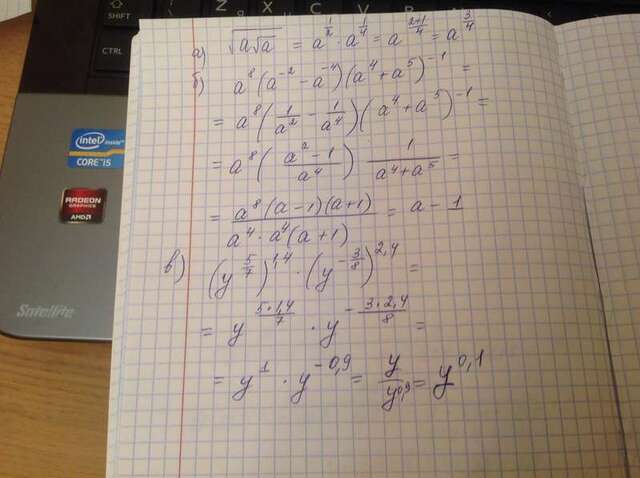 SHIFT
CTRL
intel inside™
CORE i5
RADEON
GRAPHICS
AMD
Satellite
а) √(a√a) = a^(1/2) · a^(1/4) = a^((2+1)/4) = a^(3/4)
б) a^8 (a^(-2) - a^(-4)) (a^4 + a^5)^(-1) =
= a^8 (1/a^2 - 1/a^4) (a^4 + a^5)^(-1) =
= a^8 ((a^2 - 1)/a^4) 1/(a^4 + a^5) =
= (a^8 (a-1)(a+1))/(a^4 · a^4 (a+1)) = a - 1
в) (y^(5/7))^(1,4) · (y^(-3/8))^(2,4) =
= y^((5·1,4)/7) · y^(-(3·2,4)/8) =
= y^1 · y^(-0,9) = y/y^(0,9) = y^(0,1)